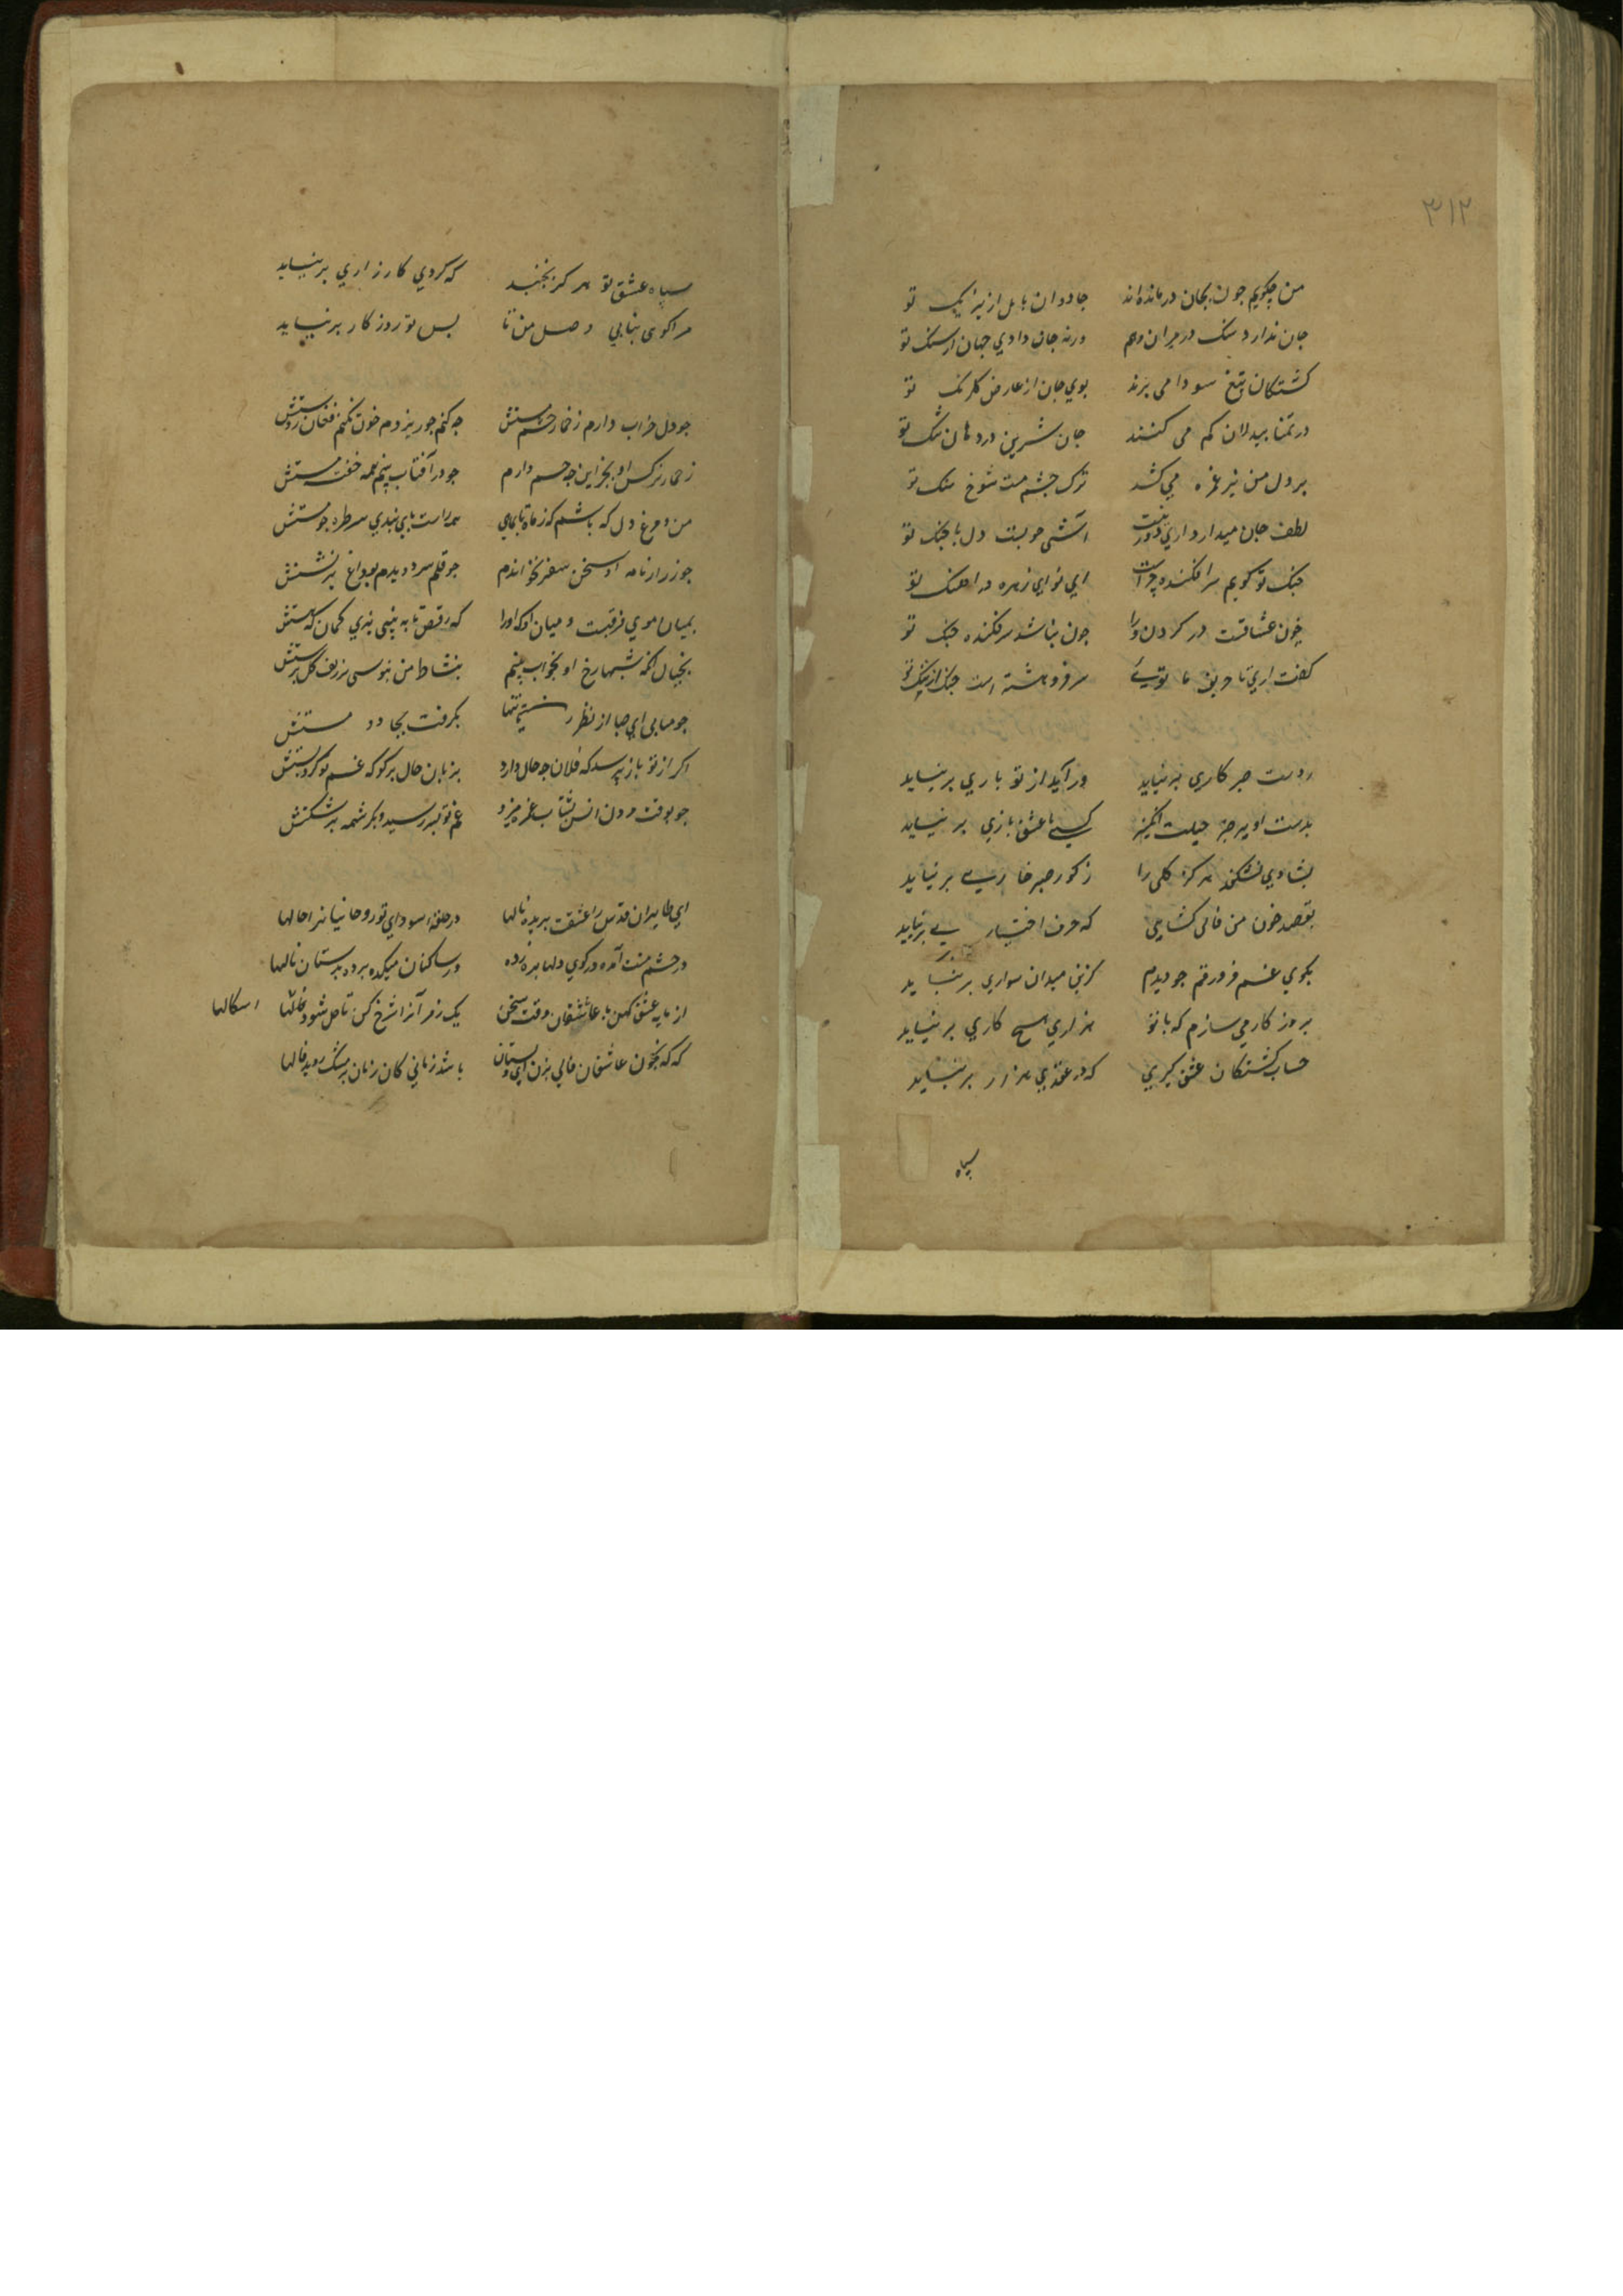 ۳۱۲
من چکویم جون بجان درمانده‌اند جادوان بابل از نیرنک تو
جان ندارد سنک در میزان وهم ورنه جان دادی جهان از سنک تو
کشتکان تیغ سودا می برند بوی جان از عارض کلرنک تو
در تمنا بیدلان کم می کنند جان شیرین در دهان تنک تو
بر دل من تیر غمزه می کشد ترک چشم مست شوخ شنک تو
لطف جان میدارد اری دور نیست آشتی دل با جنک تو
جنک تو کویم سرافکنده چراست ای نوای زهره در اهنک تو
خون عشاقت در کردن ورا جون نباشد سرفکنده جنک تو
کفت اری تا حریف ما تویی سر فرو هشته است جنک از ننک تو
ز دست صبر کاری برنیاید ور آید از تو باری برنیاید
بدست او بجز حیلت انکیز کسی با عشق بازی برنیاید
بشادی نشکفد هرکز کلی را ز کور صبر خاری برنیاید
بقصد خون من فالی کشایی که حرف اختیاری برنیاید
بکوی غم فرو رفتم جو دیدم کزین میدان سواری برنیاید
بروز کار می سازم که با تو بزاری هیچ کاری برنیاید
حساب کشتکان عشق کیری که در عقدی هزار برنیاید
سپاه
سپاه عشق تو هرکز نجنبد که کردی کارزاری برنیاید
مرا کوی بیابی وصل من تا بس تو روزکار برنیاید
جو دل خراب دارم ز خمار چشم مستش جه کنم جو ریزدم خون نکنم فغان ز دستش
ز خمار نرکس او بجز این جه جسم دارم جو در آفتاب بینم همه خفته مستش
من و مرغ دل که باشم که ز ماه تا بماهی همه راست پای بندی سر طره جو شستش
جو ز راز نامه او سخن سفر بخواندم جو قلم بسر دویدم بوداع برنشستش
بمیان موی فرقیست و میان او که او را که رقص تا به بینی نبری کمان که هستش
بخیال آنکه شبها رخ او بخواب بینم بنشاط من نبوسی سر زلف کل پرستش
جو میایی ای صبا از نظر تنها بکرفت بجادو مستش
اکر از تو باز پرسد که فلان جه حال دارد بزبان حال برکو که غم تو کرد پستش
جو بوقت مردن انس بشتاب عمر میزد غم تو بسر رسید و بکرشمه برشکستش
ای طایران قدس را عشقت بریده بالها در حلقه سودای تو روحانیانرا حالها
در چشم مست آمده در کوی دلها ره زده ور ساکنان میکده برده بدستان نالها
از مایه عشق کهن با عاشقان وقت سخن یک رمز آنرا شرح کن تا حل شود اشکالها
که که بخون عاشقان فالی بزن ای دلستان باشد زمانی کان زمان بر مشک روید فالها